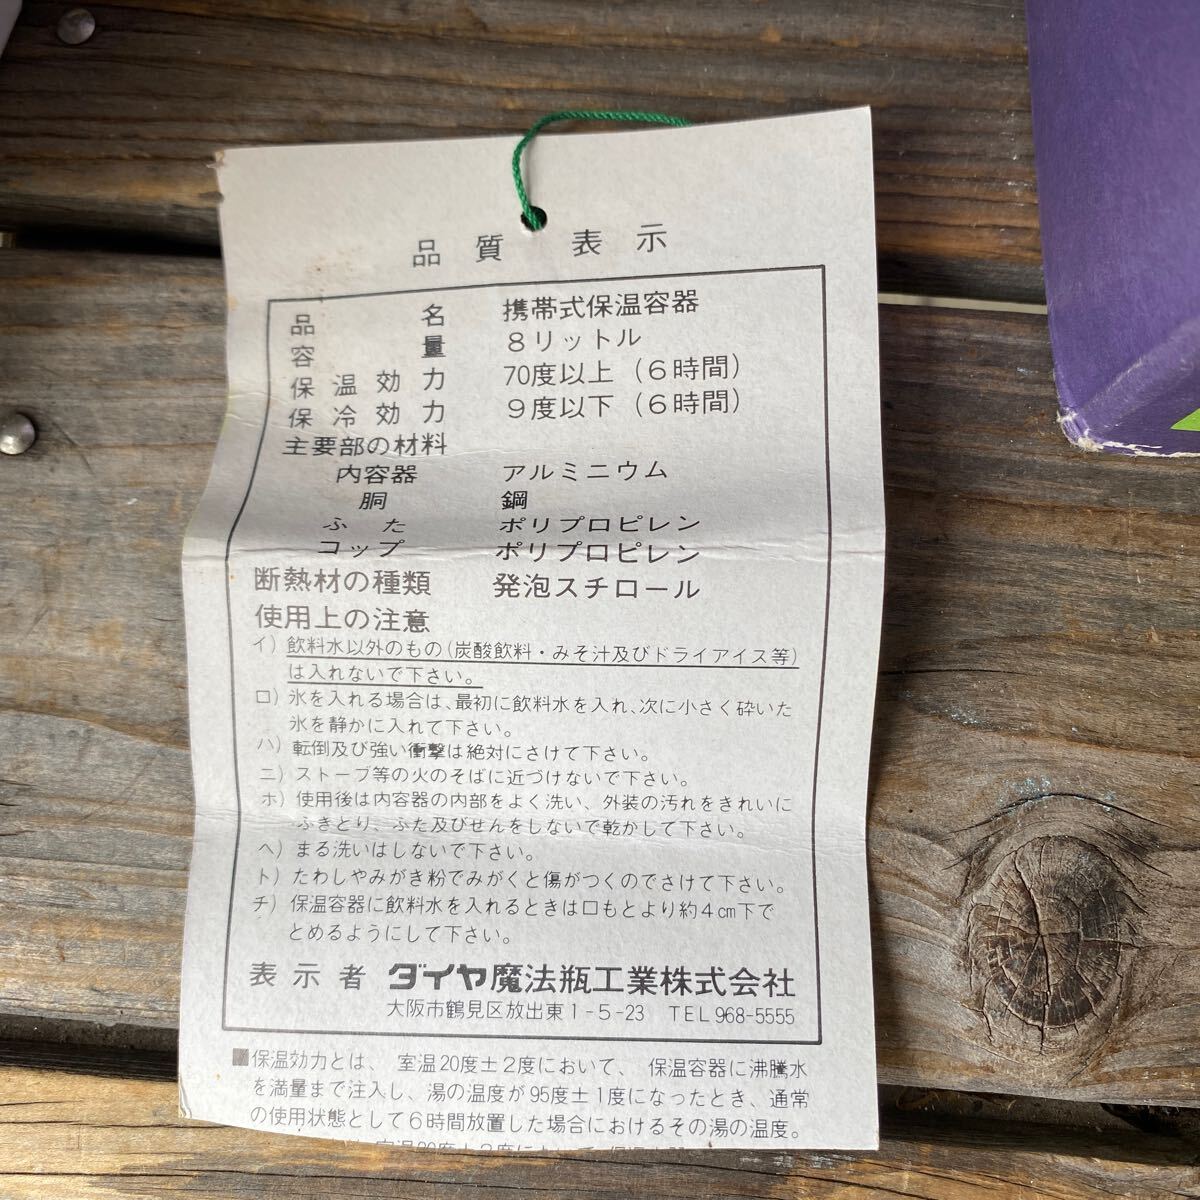 品質表示
品名 携帯式保温容器
容量 8リットル
保温効力 70度以上(6時間)
保冷効力 9度以下(6時間)
主要部の材料
内容器 アルミニウム
胴 鋼
ふた ポリプロピレン
コップ ポリプロピレン
断熱材の種類 発泡スチロール
使用上の注意
イ)飲料水以外のもの(炭酸飲料・みそ汁及びドライアイス等)
は入れないで下さい。
ロ)氷を入れる場合は、最初に飲料水を入れ、次に小さく砕いた
氷を静かに入れて下さい。
ハ)転倒及び強い衝撃は絶対にさけて下さい。
ニ)ストーブ等の火のそばに近づけないで下さい。
ホ)使用後は内容器の内部をよく洗い、外装の汚れをきれいに
ふきとり、ふた及びせんをしないで乾かして下さい。
ヘ)まる洗いはしないで下さい。
ト)たわしやみがき粉でみがくと傷がつくのでさけて下さい。
チ)保温容器に飲料水を入れるときは口もとより約4cm下で
とめるようにして下さい。
表示者 ダイヤ魔法瓶工業株式会社
大阪市鶴見区放出東1-5-23 TEL 968-5555
■保温効力とは、室温20度±2度において、保温容器に沸騰水
を満量まで注入し、湯の温度が95度±1度になったとき、通常
の使用状態として6時間放置した場合におけるその湯の温度。